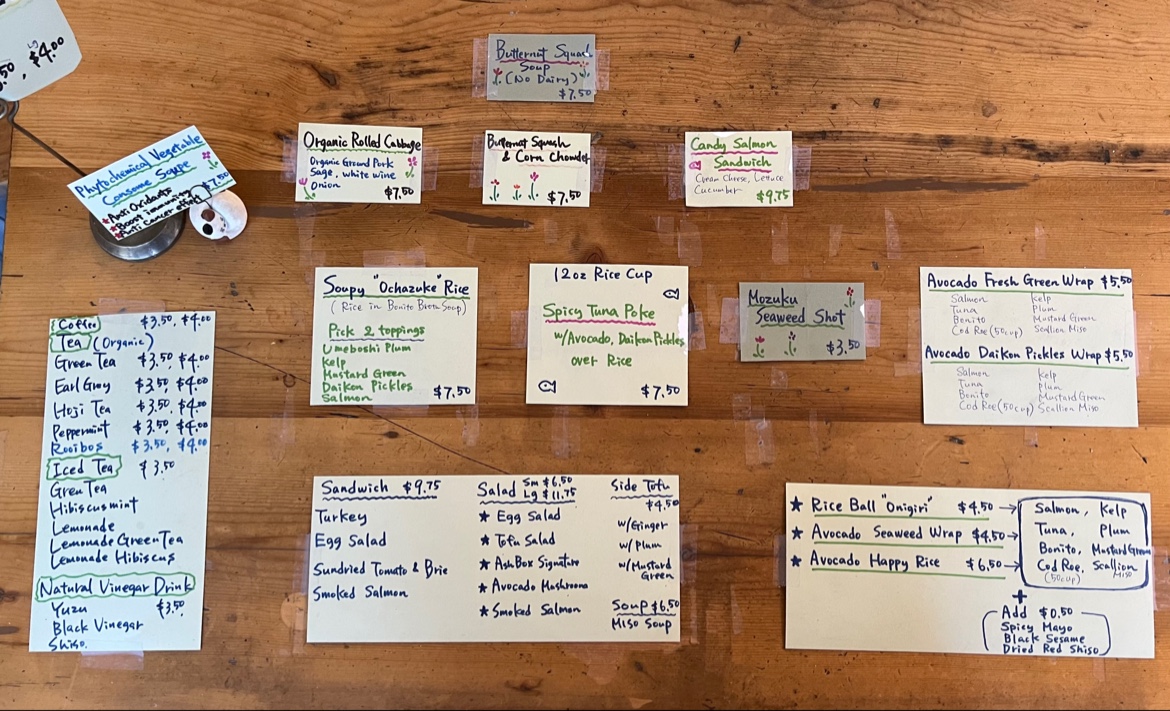 Lg
.50, $4.00
Butternut Squash
Soup
(No Dairy)
$7.50
Phytochemical Vegetable
Consome Soupe
$7.50
★Anti Oxidants
★Boost immunity
★Anti Cancer effect
Organic Rolled Cabbage
Organic Ground Pork
Sage, white wine
Onion
$7.50
Butternut Squash
& Corn Chowder
$7.50
Candy Salmon
Sandwich
Cream Cheese, Lettuce
Cucumber
$9.75
Soupy "Ochazuke" Rice
(Rice in Bonito Broth Soup)
Pick 2 toppings
Umeboshi Plum
Kelp
Mustard Green
Daikon Pickles
Salmon
$7.50
12oz Rice Cup
Spicy Tuna Poke
w/Avocado, Daikon Pickles
over Rice
$7.50
Mozuku
Seaweed Shot
$3.50
Avocado Fresh Green Wrap $5.50
Salmon Kelp
Tuna Plum
Bonito Mustard Green
Cod Roe (50cup) Scallion Miso
Avocado Daikon Pickles Wrap $5.50
Salmon Kelp
Tuna Plum
Bonito Mustard Green
Cod Roe (50cup) Scallion Miso
Coffee $3.50, $4.00
Tea (Organic)
Green Tea $3.50, $4.00
Earl Grey $3.50, $4.00
Hoji Tea $3.50, $4.00
Peppermint $3.50, $4.00
Rooibos $3.50, $4.00
Iced Tea $3.50
Green Tea
Hibiscus mint
Lemonade
Lemonade Green Tea
Lemonade Hibiscus
Natural Vinegar Drink
Yuzu $3.50
Black Vinegar
Shiso
Sandwich $9.75
Turkey
Egg Salad
Sundried Tomato & Brie
Smoked Salmon
Salad Sm $6.50
Lg $11.75
★ Egg Salad
★ Tofu Salad
★ Ash Box Signature
★ Avocado Mushrooms
★ Smoked Salmon
Side Tofu
$4.50
w/Ginger
w/Plum
w/Mustard
Green
Soup $6.50
Miso Soup
★ Rice Ball "Onigiri" $4.50→
★ Avocado Seaweed Wrap $4.50→
★ Avocado Happy Rice $6.50→
Salmon, Kelp
Tuna, Plum
Bonito, Mustard Green
Cod Roe, Scallion
(50cup) Miso
+
Add $0.50
Spicy Mayo
Black Sesame
Dried Red Shiso